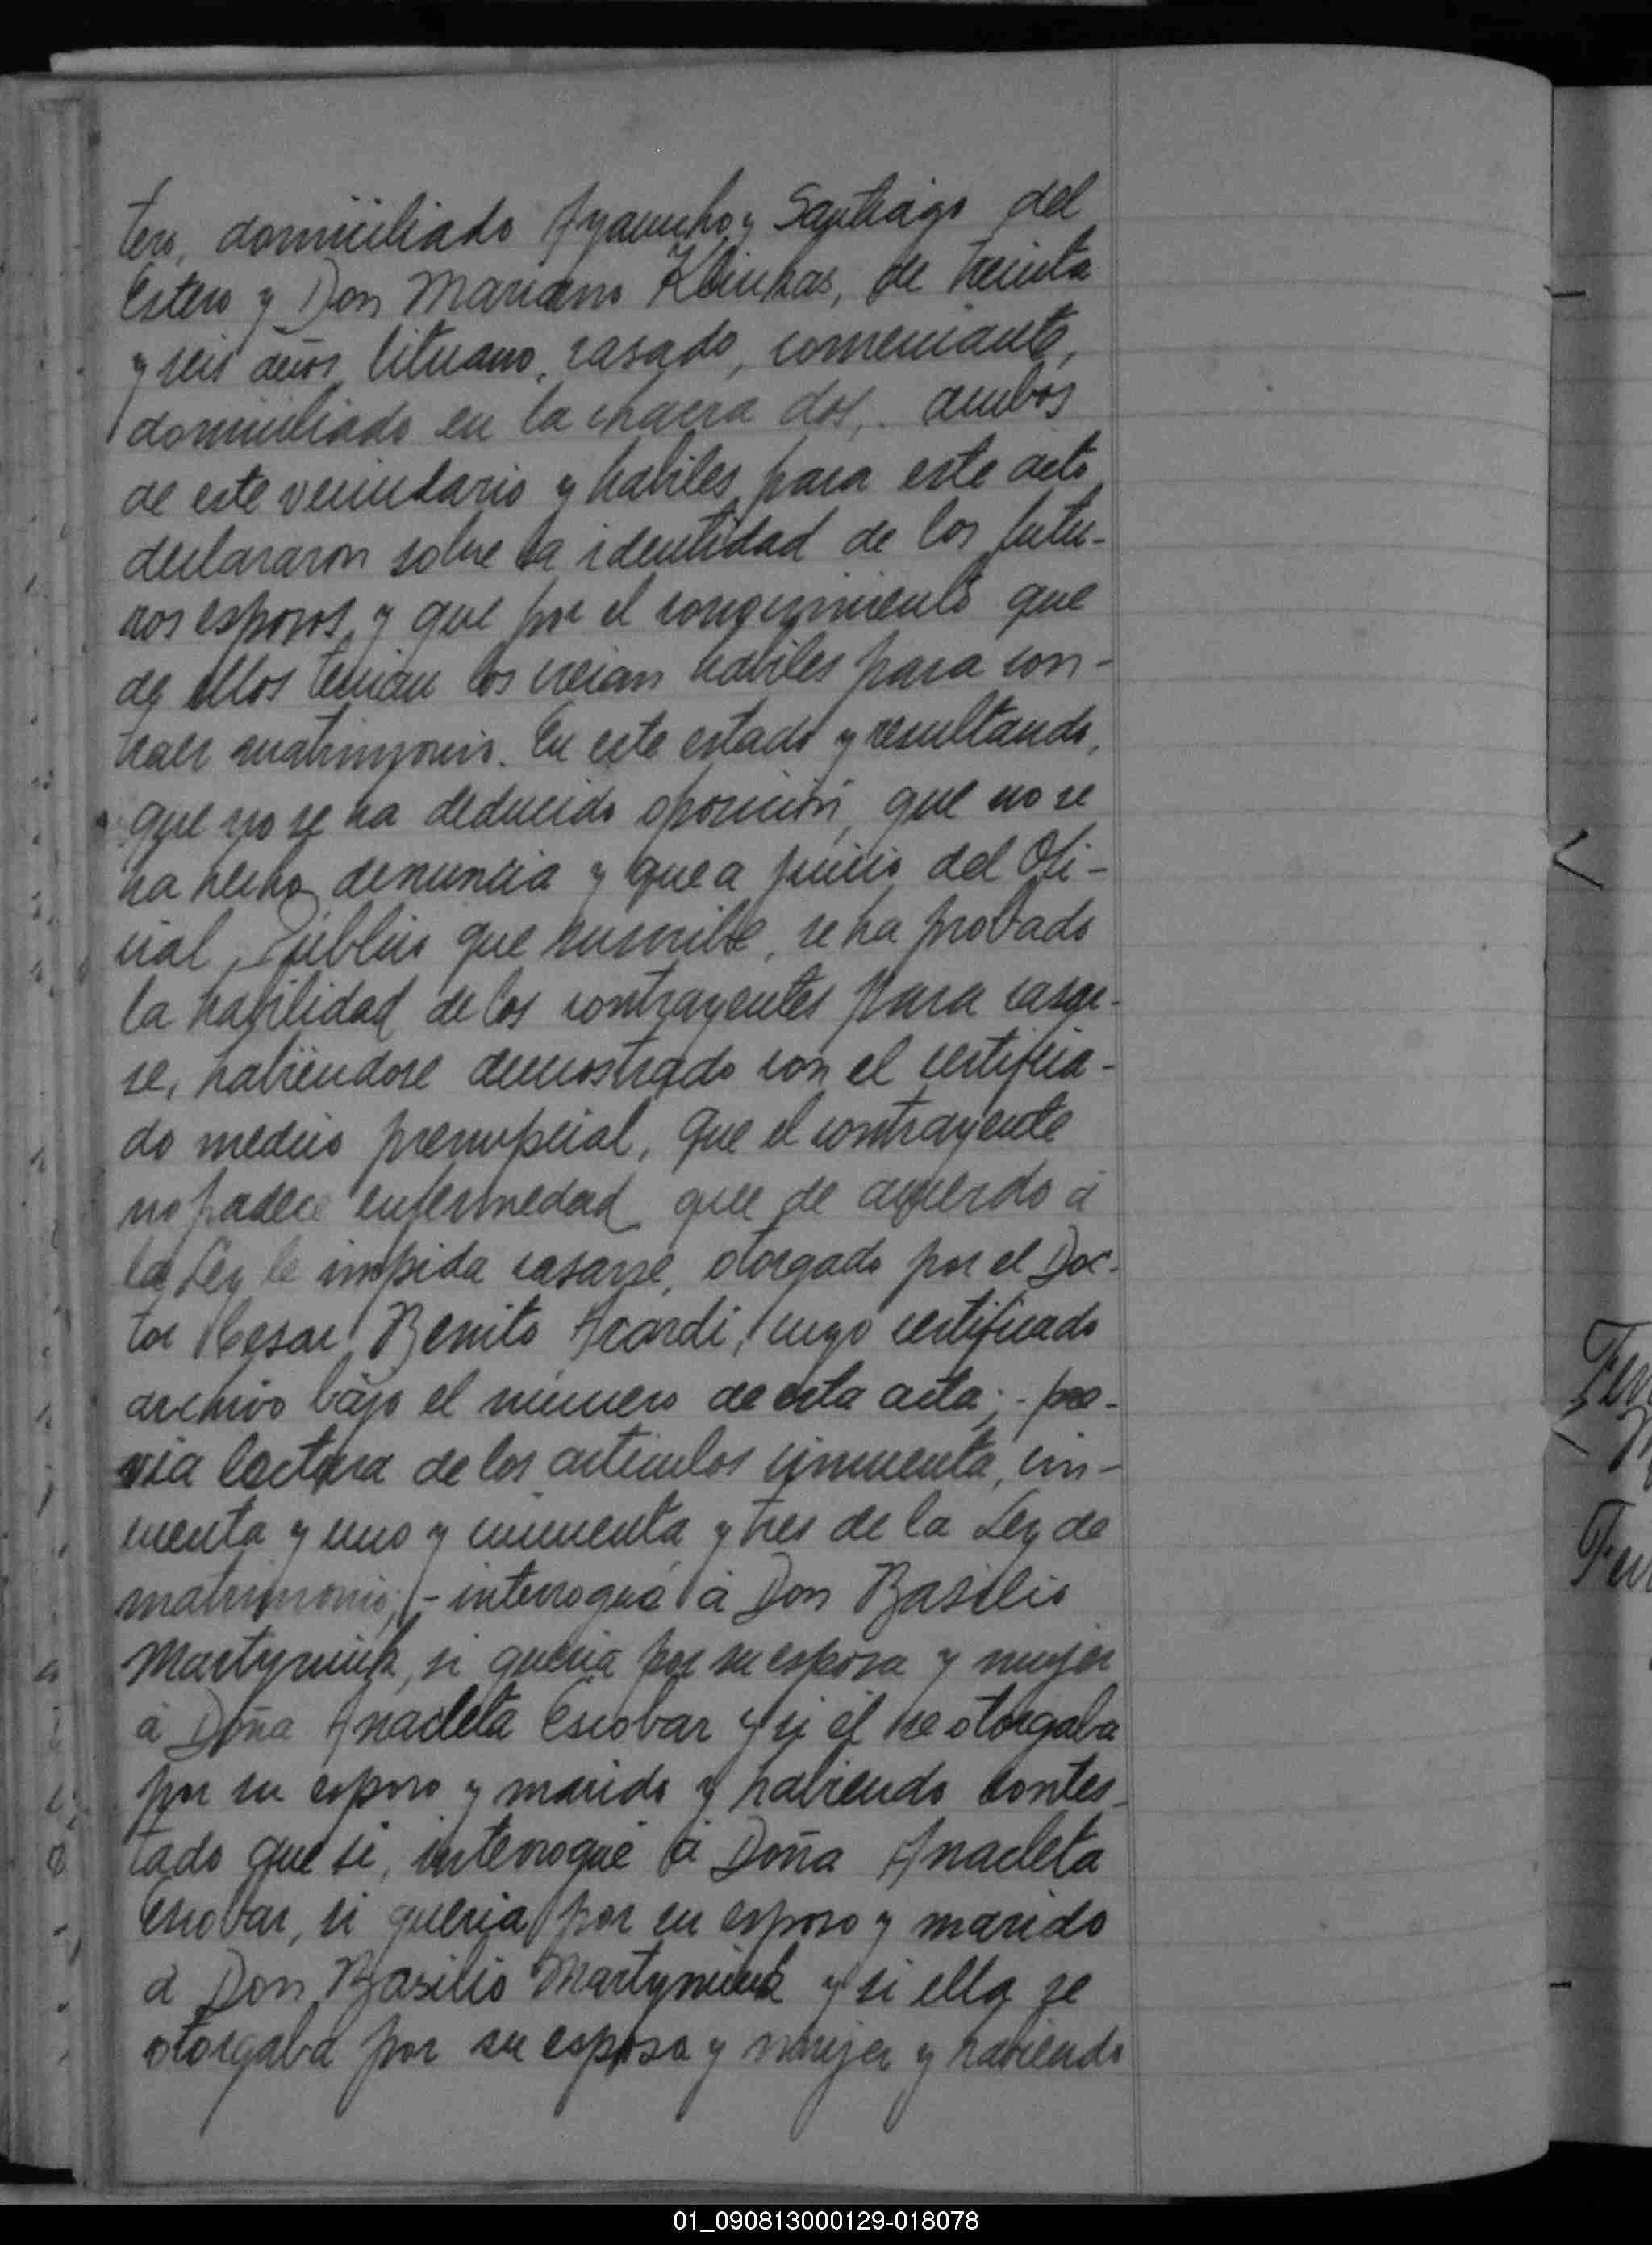 tero, domiciliado Ayacucho y Santiago del
Estero y Don Mariano Klinkas, de treinta
y seis años, lituano, casado, comerciante,
domiciliado en la chacra dos, ambos
de este vecindario y habiles para este acto
declararon sobre la identidad de los futu-
ros esposos, y que por el conocimiento que
de ellos tenian los creian habiles para con-
traer matrimonio. En este estado y resultando,
que no se ha deducido oposición, que no se
ha hecho denuncia y que a juicio del Ofi-
cial Público que suscribe, se ha probado
la habilidad de los contrayentes para casar-
se, habiendose demostrado con el certifica-
do medico prenupcial, que el contrayente
no padece enfermedad que de acuerdo á
la Ley le impida casarse, otorgado por el Doc-
tor Cesar Benito Acardi, cuyo certificado
archivo bajo el número de esta acta; - pre-
via lectura de los articulos cincuenta, cin-
cuenta y uno y cincuenta y tres de la Ley de
matrimonio; - interrogué á Don Basilio
Martyniuk, si queria por su esposa y mujer
á Doña Anacleta Escobar y si él se otorgaba
por su esposo y marido y habiendo contes-
tado que si, interrogué á Doña Anacleta
Escobar, si queria por su esposo y marido
á Don Basilio Martyniuk y si ella se
otorgaba por su esposa y mujer y habiendo
01_090813000129-018078